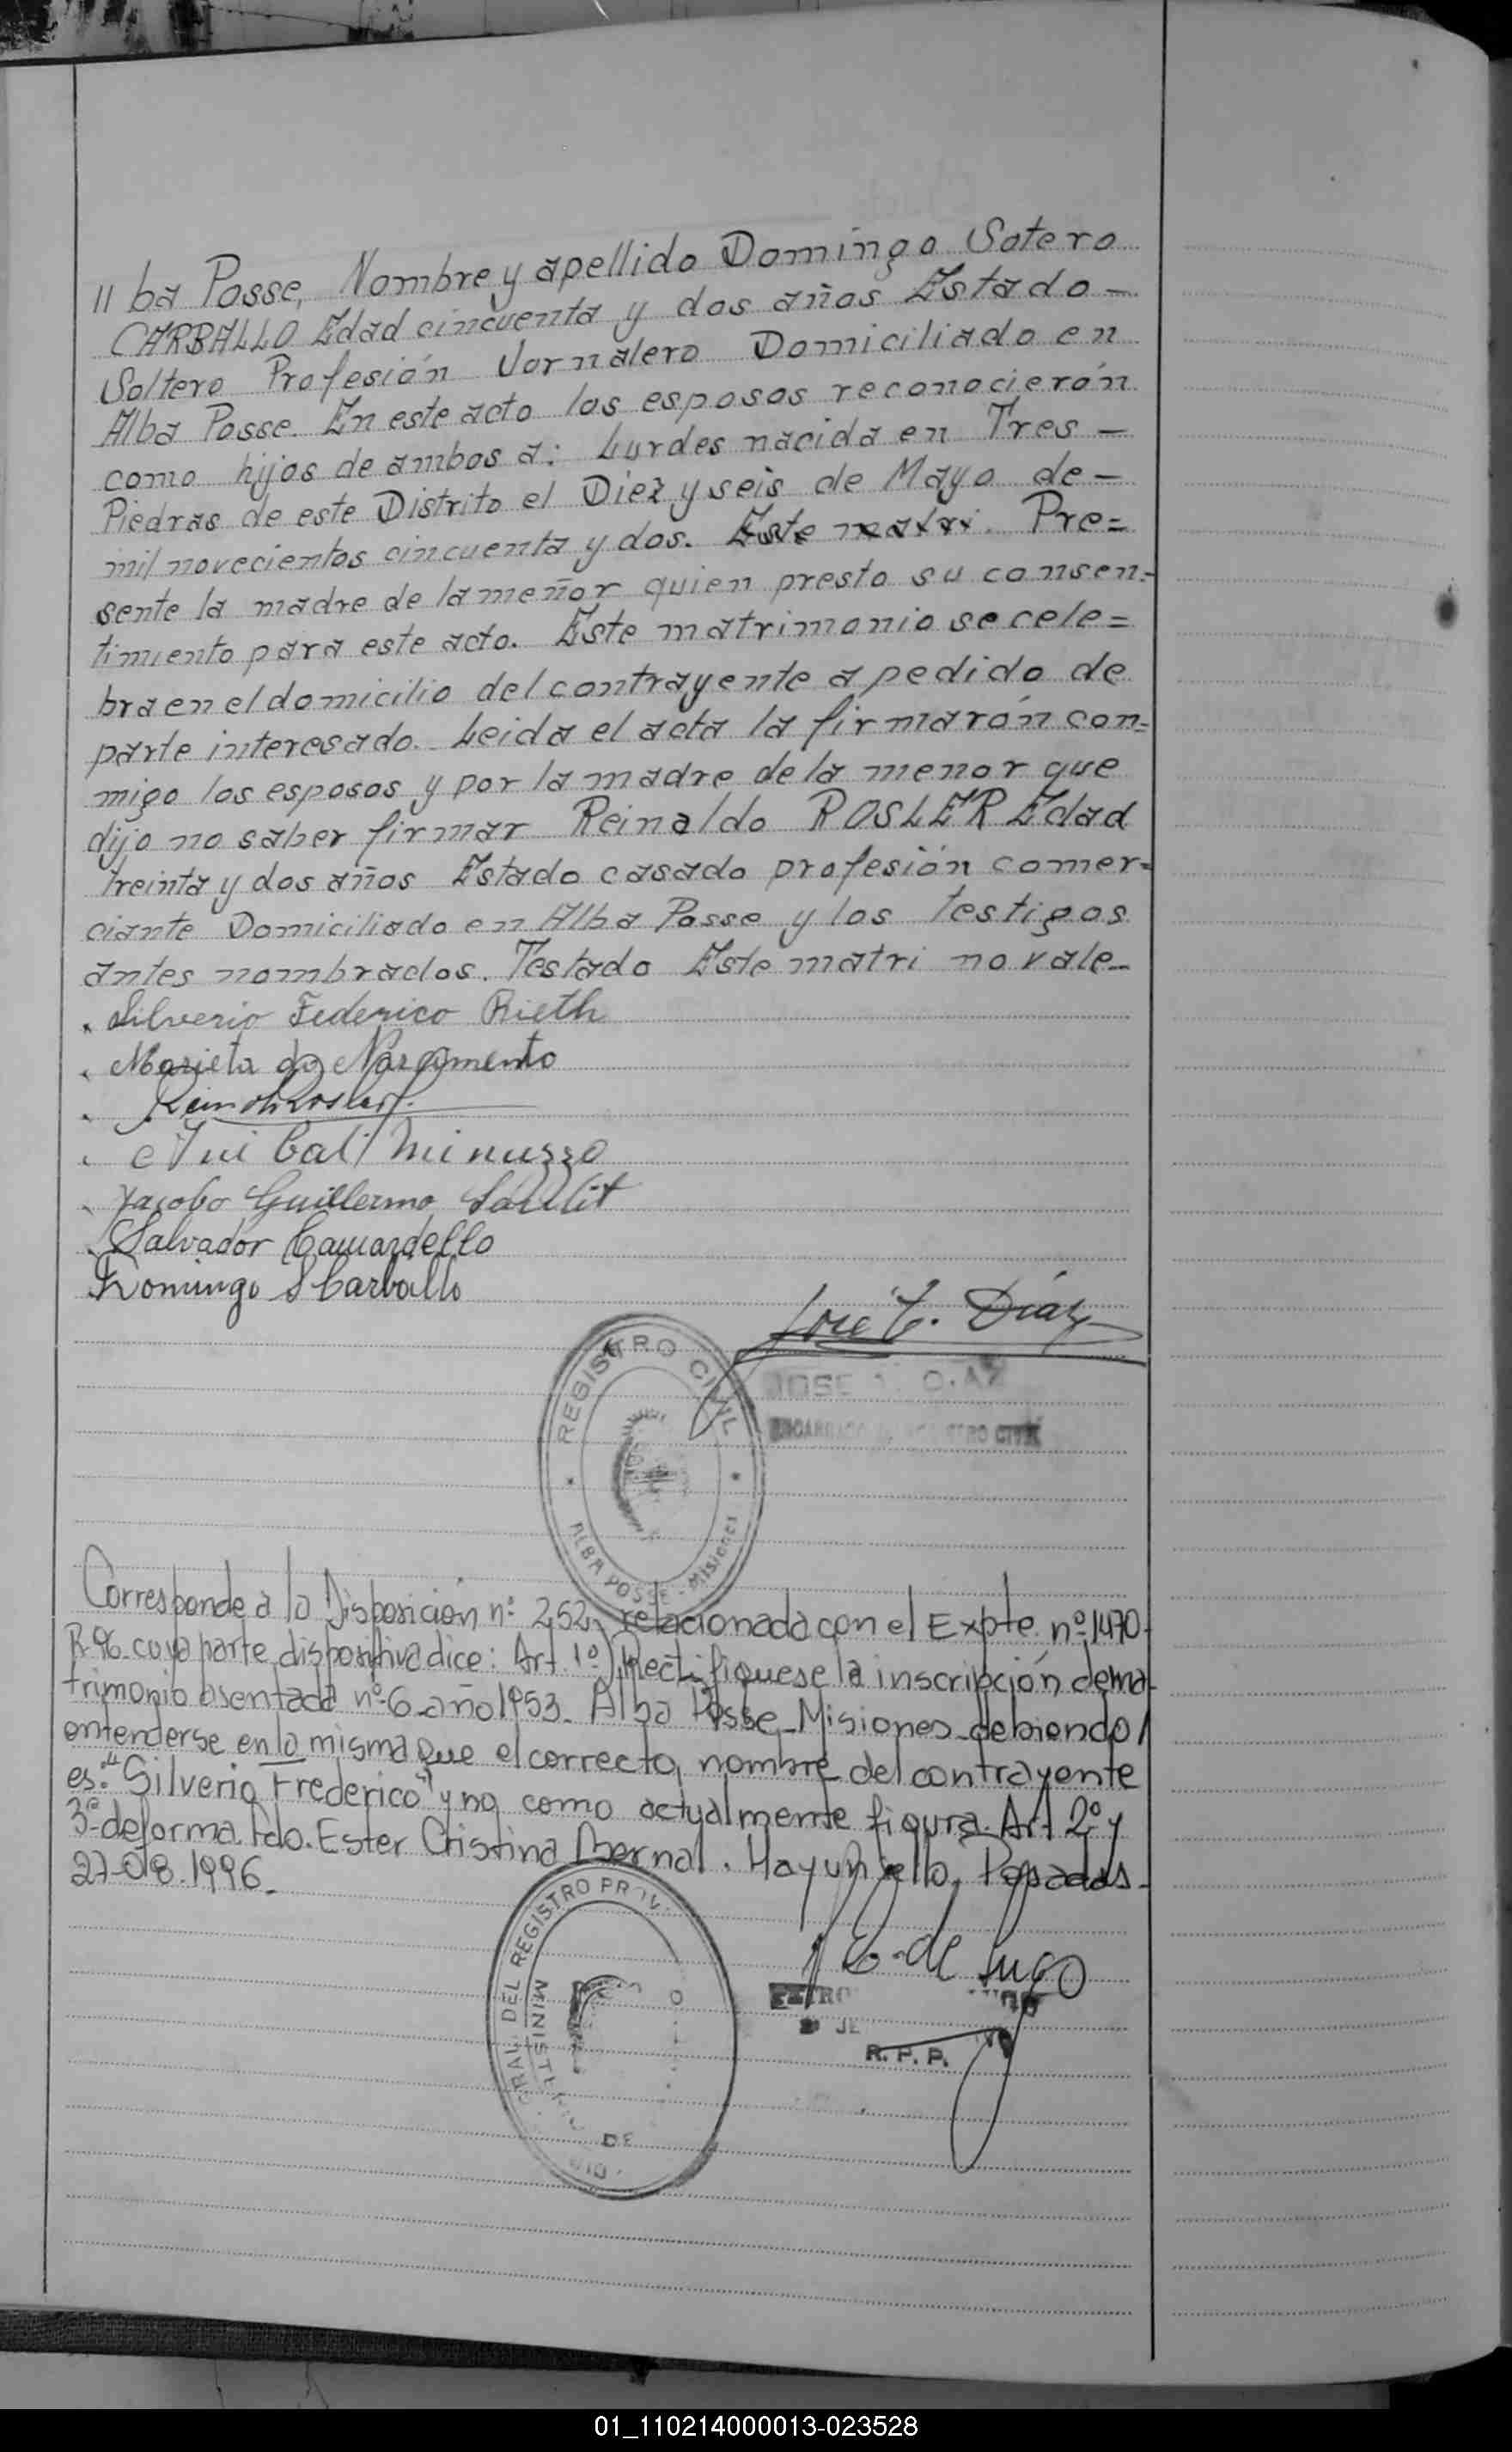 11 ba Posse, Nombre y apellido Domingo Sotero
CARBALLO Edad cincuenta y dos años Estado -
Soltero Profesión Jornalero Domiciliado en
Alba Posse. En este acto los esposos reconocierón
como hijos de ambos a: Lurdes nacida en Tres -
Piedras de este Distrito el Diez y seis de Mayo de -
mil novecientos cincuenta y dos. Este matri. Pre=
sente la madre de la menor quien presto su consen=
timiento para este acto. Este matrimonio se cele=
bra en el domicilio del contrayente a pedido de
parte interesado. Leida el acta la firmarón con=
migo los esposos y por la madre de la menor que
dijo no saber firmar Reinaldo ROSLER Edad
treinta y dos años Estado casado profesión comer=
ciante Domiciliado en Alba Posse y los testigos
antes nombrados. Testado Este matri no vale_
Silverio Federico Rieth
Marieta do Nascimento
Anibal Minuzzo
Jacobo Guillermo
Salvador Camardello
Domingo S Carballo
José Díaz
REGISTRO CIVIL
ALBA POSSE - Misiones
JOSE
REGISTRO CIVIL
Corresponde a la Disposición nº 252, relacionada con el Expte. nº 1470-
R-96 cuya parte dispositiva dice: Art. 1º) Rectifiquese la inscripción de ma-
trimonio asentada nº 6 año 1953 - Alba Posse - Misiones - debiendo/
entenderse en la misma que el correcto nombre del contrayente
es: "Silverio Frederico" y no como actualmente figura. Art 2º y
3º de forma. Fdo. Ester Cristina Bernal. Hay un sello, Posadas.
27-08.1996_
GRAL. DEL REGISTRO PROV.
MINISTE DE
de Lugo
R. P. P.
01_110214000013-023528